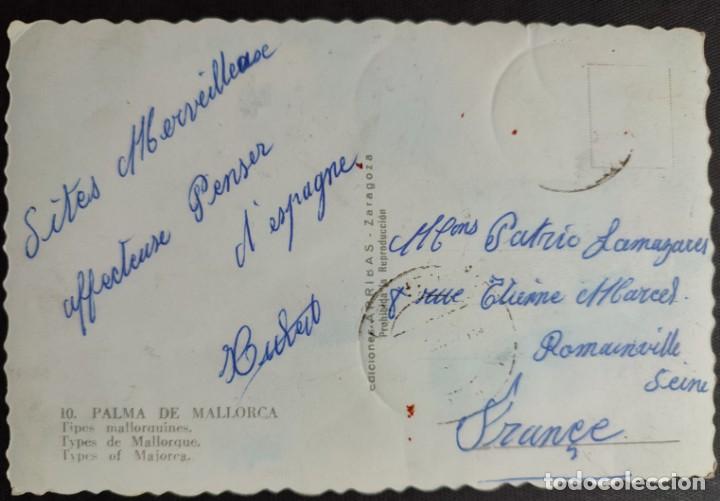 Sites Merveilleux
affecteuse Penser
d'espagne
10. PALMA DE MALLORCA
Tipos mallorquines.
Types de Mallorque.
Types of Majorca.
Ediciones ARRIBAS - Zaragoza
Prohibida la Reproducción
Mons Patric Lamazares
8 rue Etienne Marcel
Romainville
Seine
France
todocoleccion.net